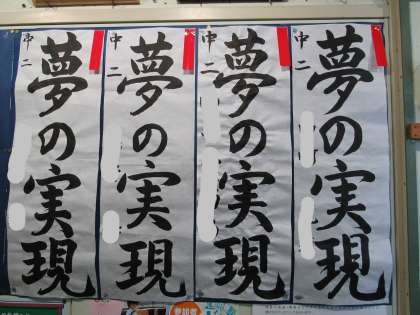 中二
夢の実現
中二
夢の実現
中二
夢の実現
中二
夢の実現